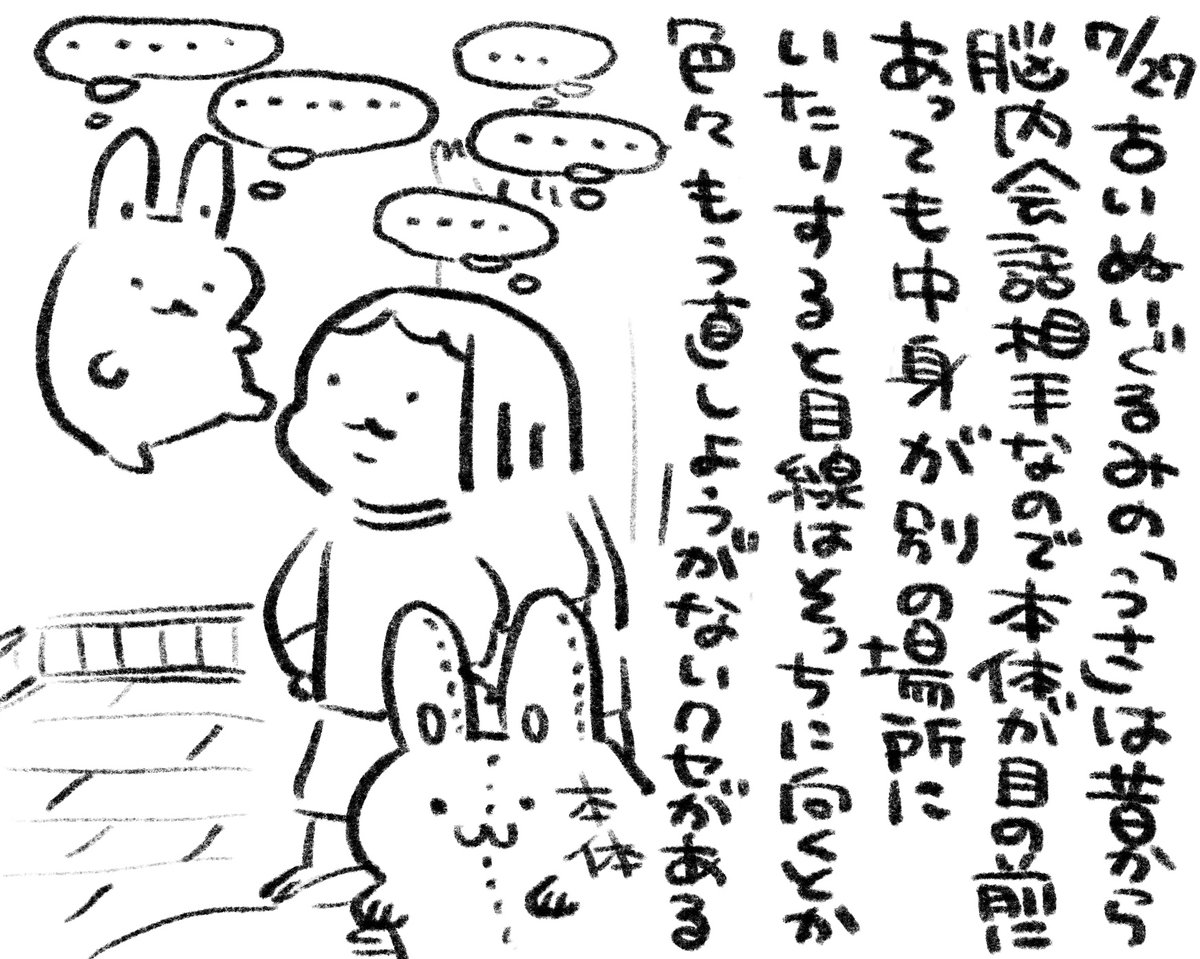 7/27 古いぬいぐるみの「うさ」は昔から
脳内会話相手なので本体が目の前に
あっても中身が別の場所に
いたりすると目線はどっちに向くとか
色々もう直しようがないクセがある
本体